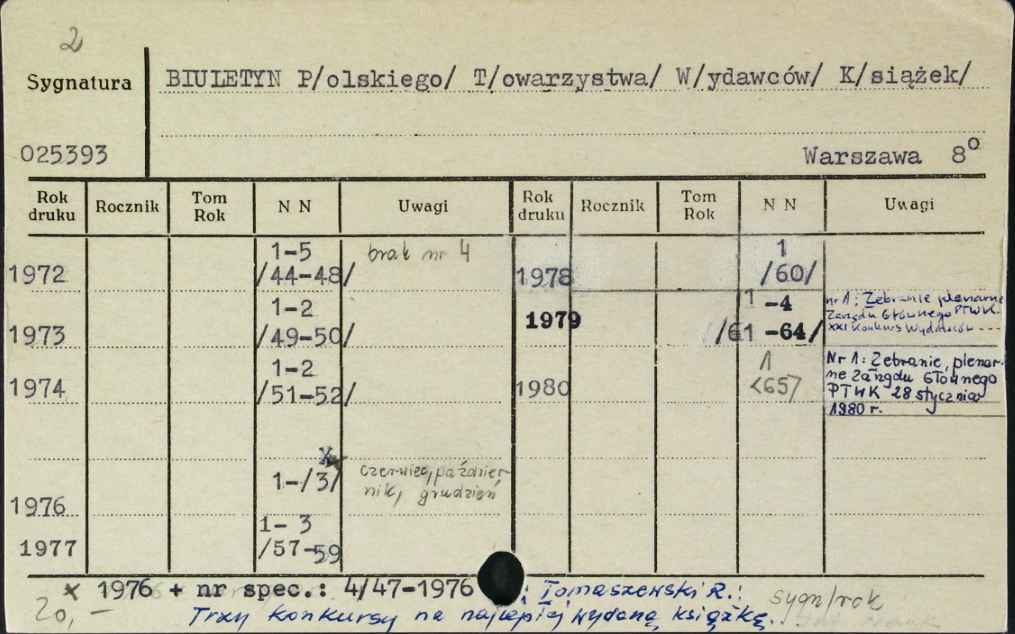 2
Sygnatura
BIULETYN P/olskiego/ T/owarzystwa/ W/ydawców/ K/siążek/
025393
Warszawa 8°
Rok druku Rocznik Tom Rok N N Uwagi Rok druku Rocznik Tom Rok N N Uwagi
1972 1-5 /44-48/ brak nr 4
1978 1 /60/
1973 1-2 /49-50/
1979 1 -4 /61 -64/ nr 1: Zebranie plenarne
Zarządu Głównego PTWK.
XXI Konkurs Wydawców ---
1974 1-2 /51-52/
1980 1 <65> Nr 1: Zebranie, plenar-
ne Zarządu Głównego
PTWK 28 stycznia
1980 r.
1976 x 1-/3/ czerwiec, paździer-
nik, grudzień
1977 1- 3 /57-59
x 1976 + nr spec.: 4/47-1976 ; Tomaszewski R.:
Trzy konkursy na najlepiej wydaną książkę.
sygn/rok
20,-